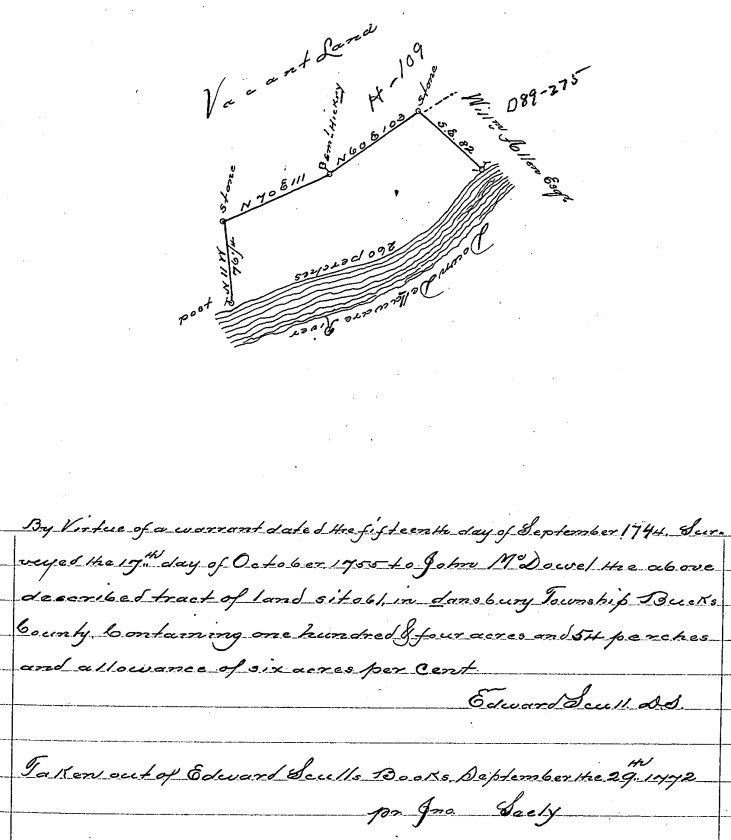 Vacant Land
H-109
D89-275
Stone
Bem! Hickry
Stone
Willm Allen Esqr
N 70 E 111
N 60 E 103
S.E. 82
N 11 W
260 perches
Down Dellaware River
By Virtue of a warrant dated the fifteenth day of September 1744. Sur-
veyed the 17th day of October 1755 to John McDowel the above
described tract of land in dansbury Township Bucks
County. Containing one hundred & four acres and 54 perches
and allowance of six acres per Cent
Edward Scull D.S.
Taken out of Edward Sculls Books September the 29th 1772
pr Jno Seely